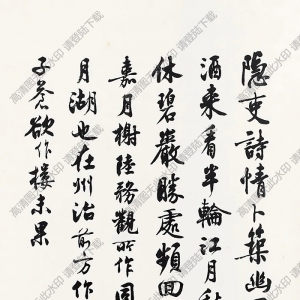 隐吏詩情卜築幽
酒来看半輪江月秋
休碧巖勝處頻回
嘉月榭陸務觀所作同
月湖也在州治前方作
子蒼欲作樓未果